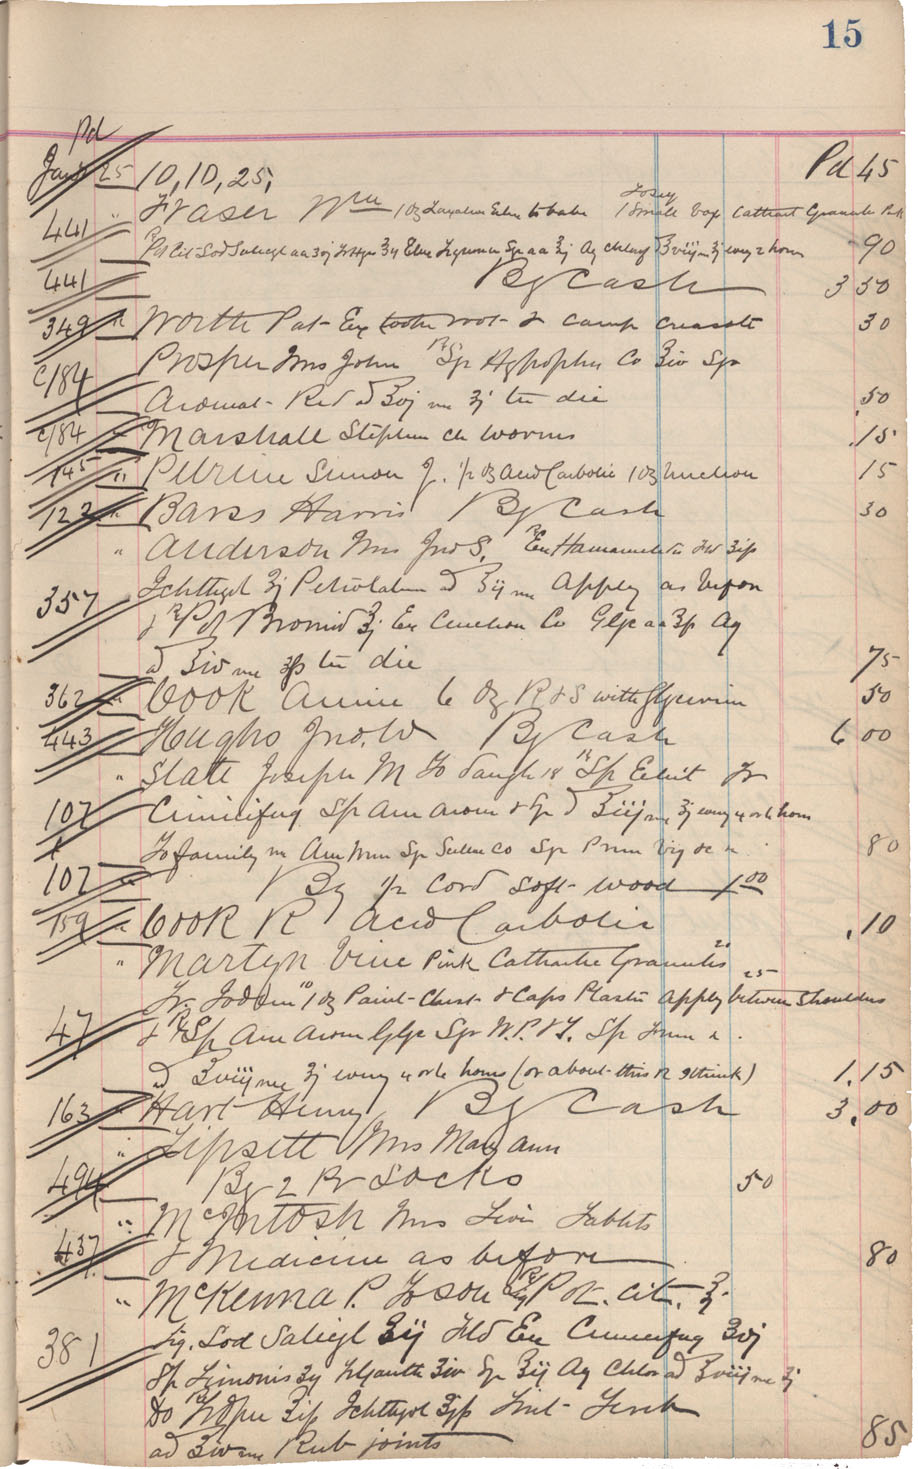 15
Pd
Jany 25 10, 10, 25, Pd 45
441 " Fraser Wm 1 oz to babe 1 Small box Cathart Granules Pink
Pot Cit Sod Salicyl aa ʒvj ʒij Elix Syr aa ℥j Aq Chlorof ad ℥viij m ʒj every 2 hours 90
441 By Cash 3 50
349 " Worth Pat Ex tooth root & camp creasote 30
Prosper Mrs John Rx Syr Hypophos Co ℥iv Syr
c/84 Aromat Red ad ℥vj m ʒj ter die .50
c/84 " Marshall Stephen ch worms .15
145 " Petrie Simon J. ½ oz Acid Carbolic 1 oz 15
122 " Barss Harris By Cash 30
" Anderson Mrs Jno S. Rx Ex Hamamelis Fld
357 Ichthyol ʒj Petrolatum ad ℥ij m Apply as before
& Rx Pot Bromid ℥j Ex Co Glyc aa Aq
ad ℥iv m ter die 75
362 " Cook Annie 6 oz R & S with Glycerin 50
443 Hughs Jno. W By Cash 6 00
" Slate Joseph M To daugh 18 Rx Sp Ether Nit Tr
107 Cimicifug Sp Am Arom & Syr ad ℥iij m ʒj every 4 or 6 hours
To family m Am Mur Syr Scillae Co Syr Prun Virg 80
107 " By ½ Cord Soft wood 1 00
159 " Cook R Acid Carbolic .10
" Martyn Vine Pink Cathartic Granules 25
1 oz Paint Chest & Caps Plaster 25 apply between Shoulders
47 & Rx Sp Am Arom Glyc Syr W.P. & T. Sp
ad ℥viij m ʒj every 4 or 6 hours (or about this R I think) 1.15
163 " Hart Henry By Cash 3.00
" Lipsett Mrs Mary Ann
494 By 2 Pr Socks 50
" McIntosh Mrs Levi Tablets
437 & Medicine as before 80
" McKenna P. To son Rx Pot. Cit.
381 Sod Salicyl ʒij Fld Ex Cimicifug ʒvj
Sp Limonis ʒij ℥iv Syr ℥ij Aq Chlor ad ℥viij m ʒj
Do Rx Ichthyol
ad ℥iv m Rub joints 85